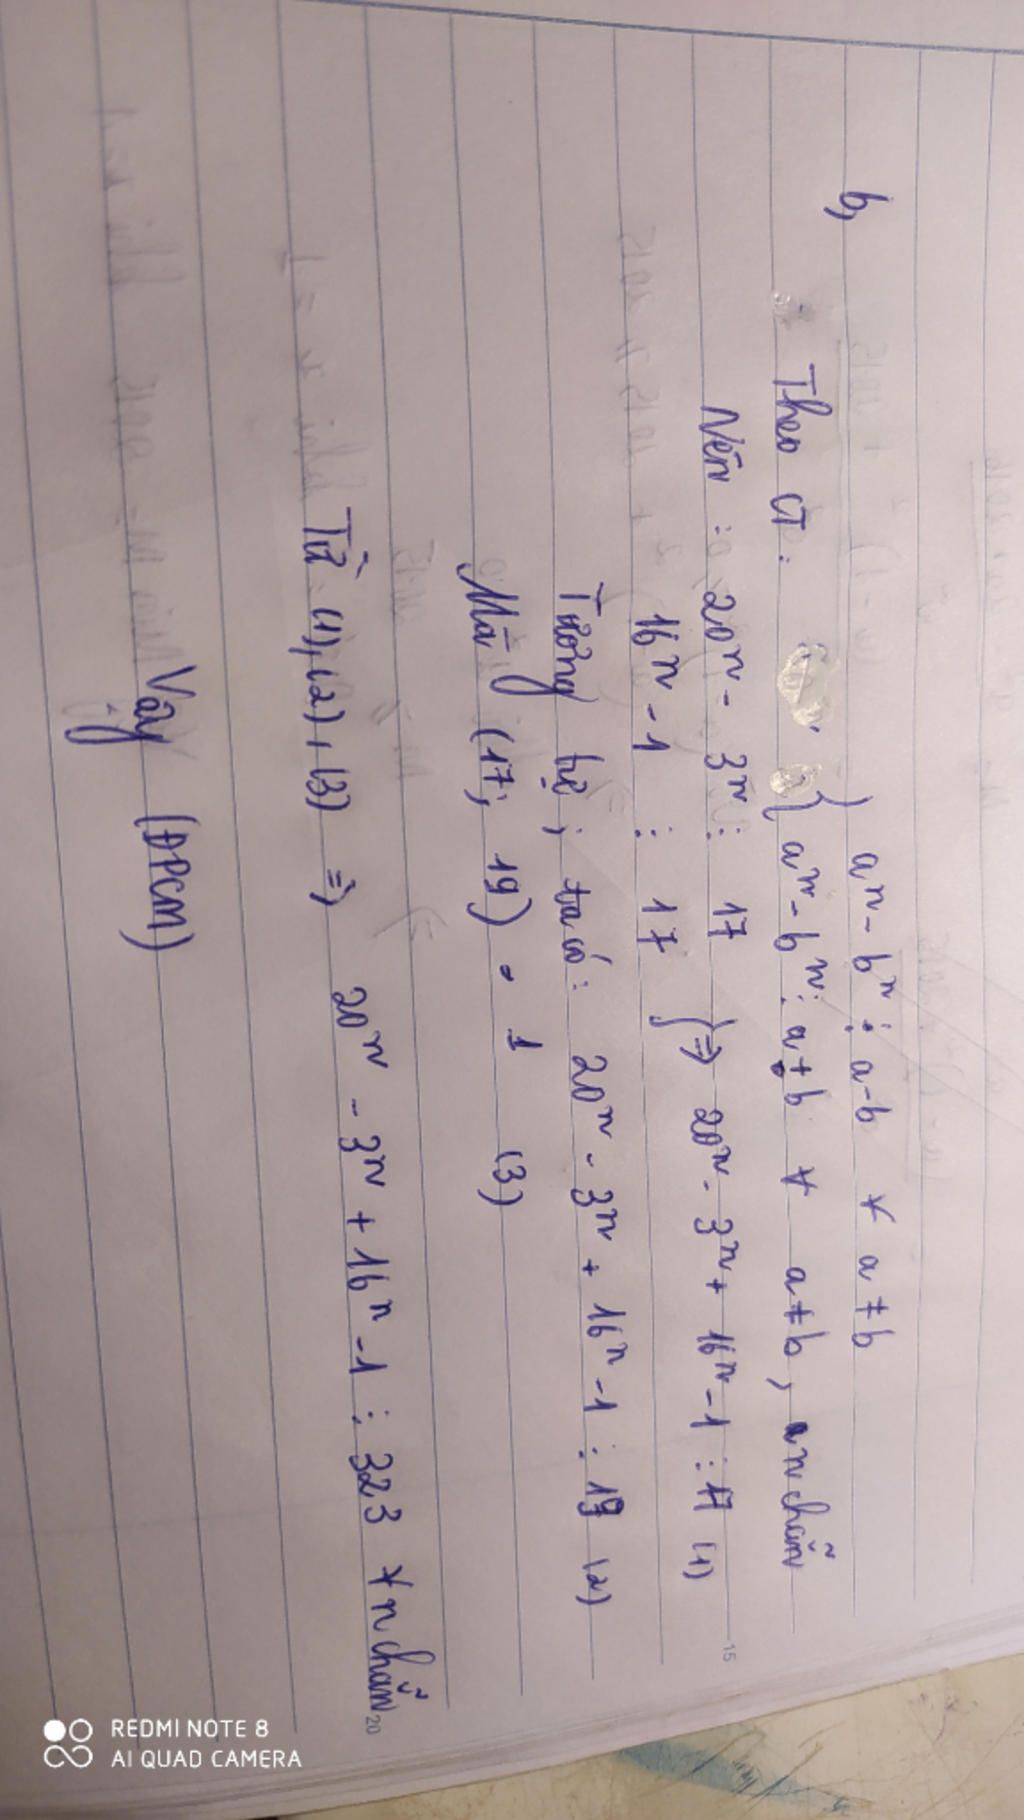 b,
aⁿ - bⁿ ⋮ a-b ∀ a ≠ b
Theo CT: aⁿ - bⁿ ⋮ a+b ∀ a≠b, n chẵn
Nên : 20ⁿ - 3ⁿ ⋮ 17 } => 20ⁿ - 3ⁿ + 16ⁿ - 1 ⋮ 17 (1)
16ⁿ - 1 ⋮ 17
Tương tự, ta có: 20ⁿ - 3ⁿ + 16ⁿ - 1 ⋮ 19 (2)
Mà (17; 19) = 1 (3)
Từ (1), (2), (3) => 20ⁿ - 3ⁿ + 16ⁿ - 1 ⋮ 323 ∀ n chẵn
Vậy (ĐPCM)
15
20
REDMI NOTE 8
AI QUAD CAMERA